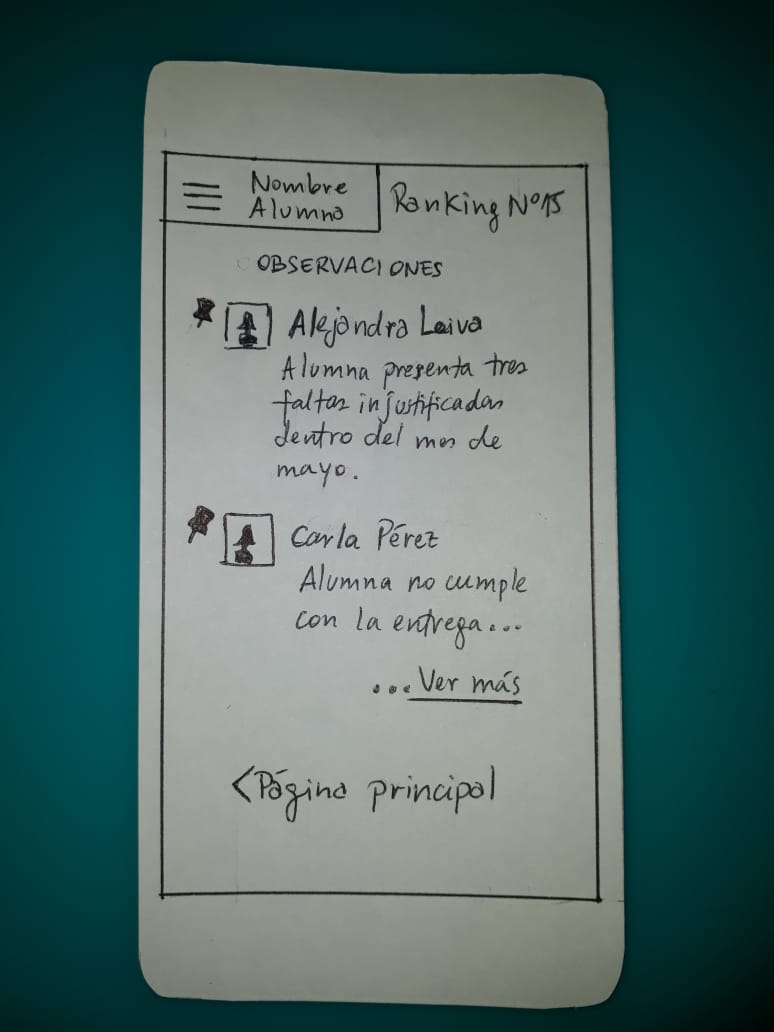 Nombre
Alumno
Ranking Nº15
OBSERVACIONES
Alejandra Leiva
Alumna presenta tres
faltas injustificadas
dentro del mes de
mayo.
Carla Pérez
Alumna no cumple
con la entrega...
...Ver más
<Página principal